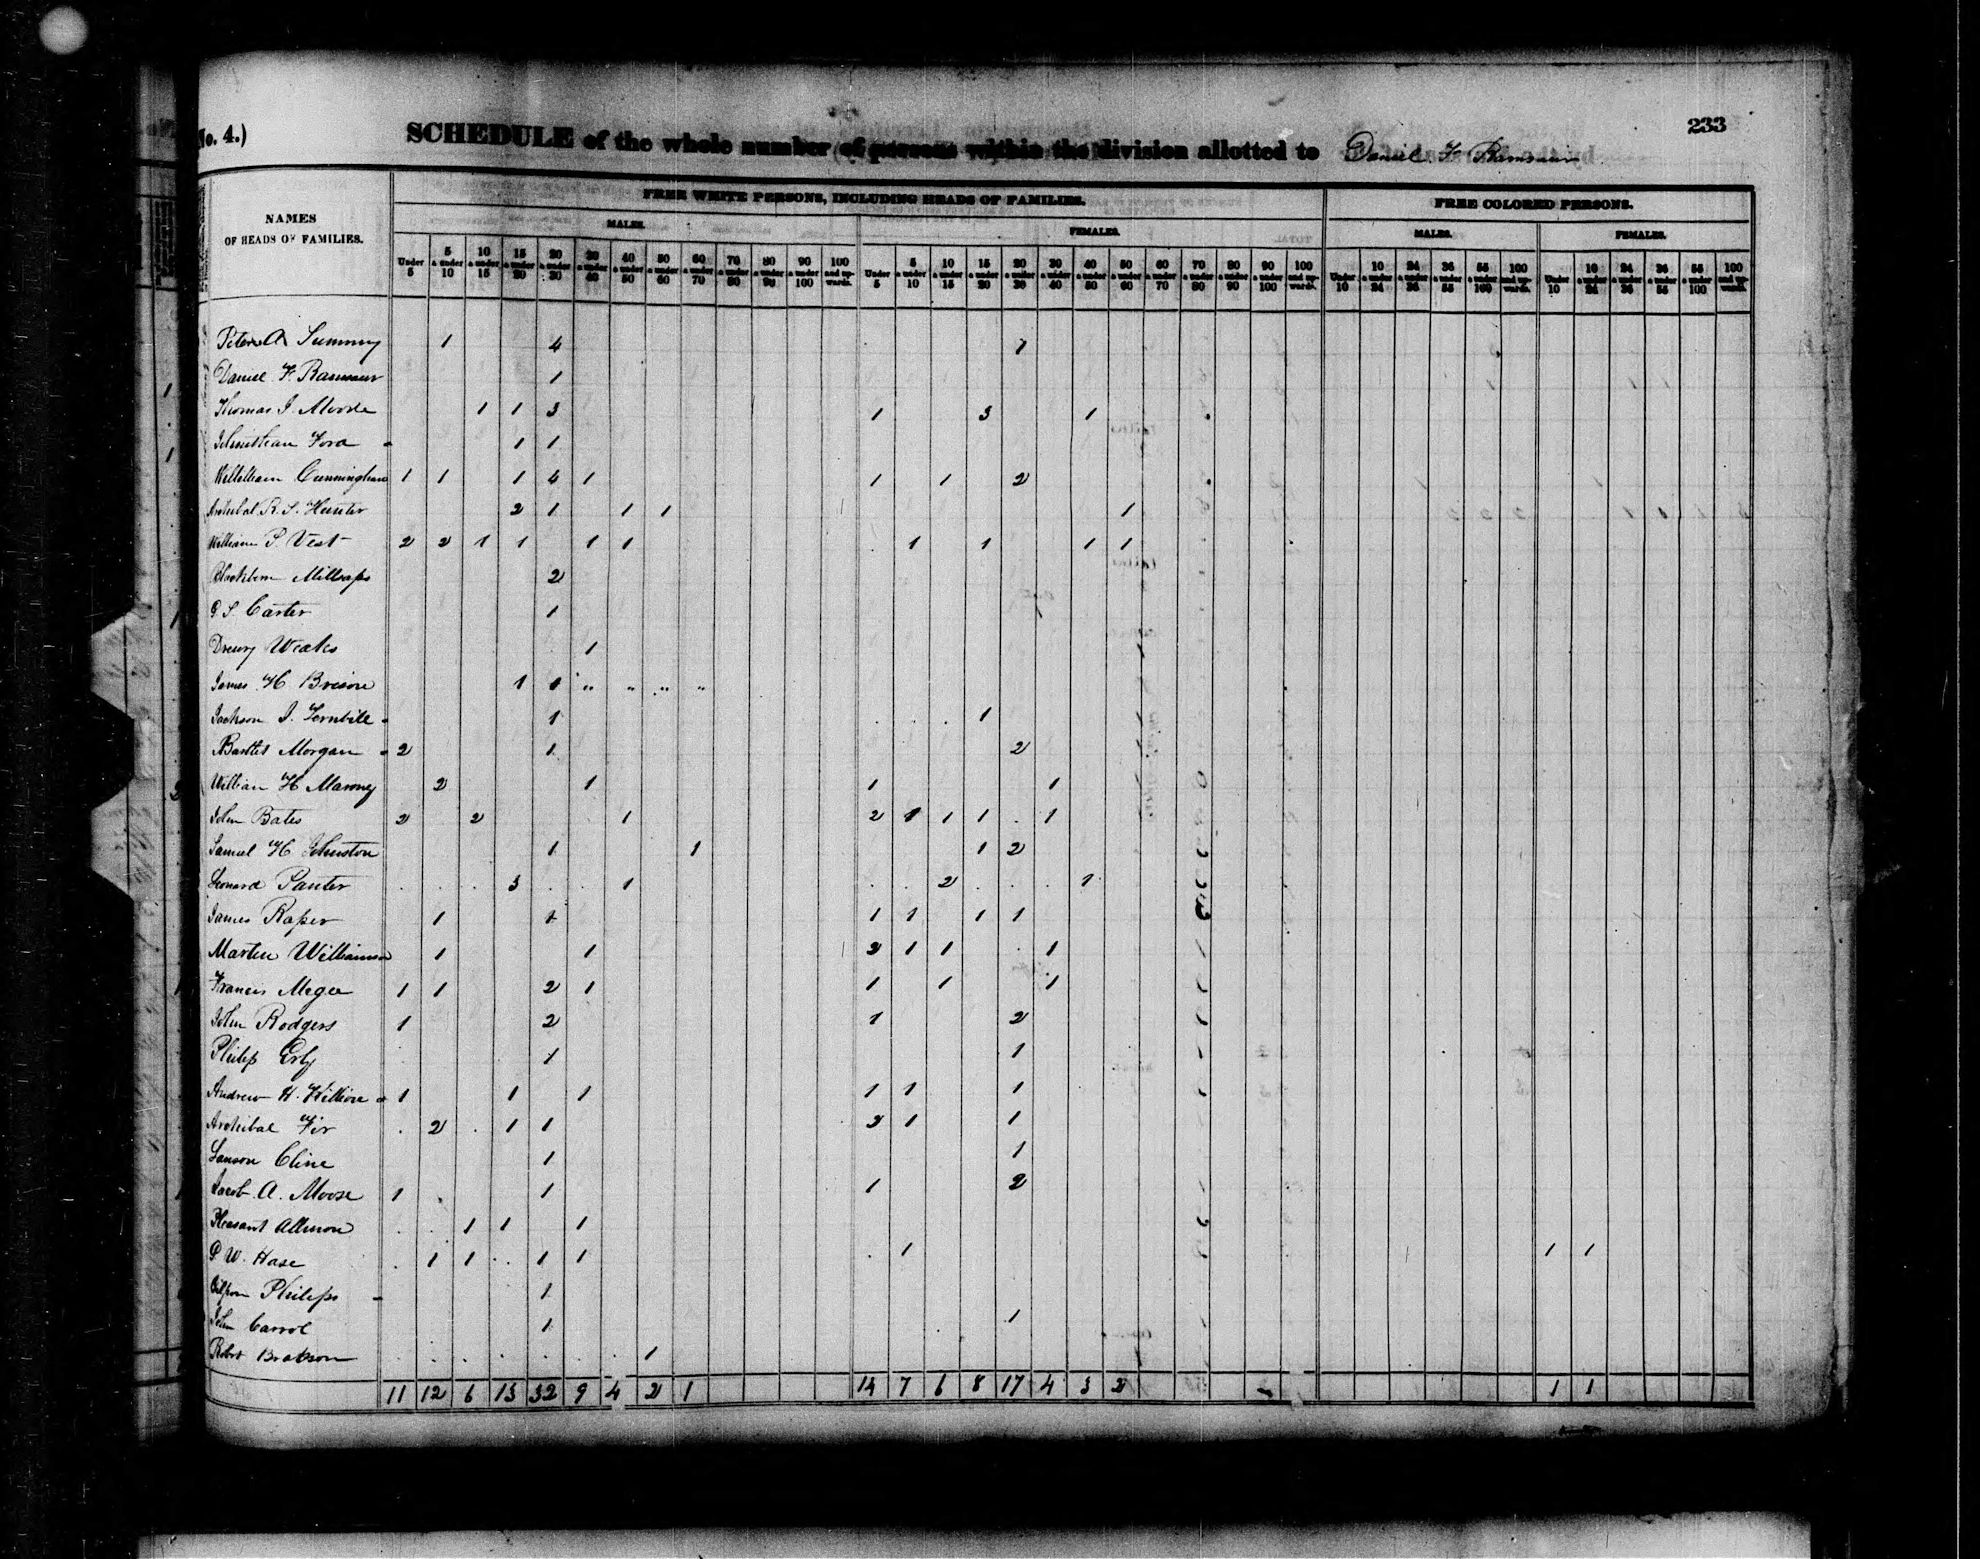 No. 4.)
233
SCHEDULE of the whole number of persons within the division allotted to Daniel F. Ramsaur
NAMES OF HEADS OF FAMILIES.
FREE WHITE PERSONS, INCLUDING HEADS OF FAMILIES.
FREE COLORED PERSONS.
MALES.
FEMALES.
MALES.
FEMALES.
Under 5 | 5 & under 10 | 10 & under 15 | 15 & under 20 | 20 & under 30 | 30 & under 40 | 40 & under 50 | 50 & under 60 | 60 & under 70 | 70 & under 80 | 80 & under 90 | 90 & under 100 | 100 and upwards. | Under 5 | 5 & under 10 | 10 & under 15 | 15 & under 20 | 20 & under 30 | 30 & under 40 | 40 & under 50 | 50 & under 60 | 60 & under 70 | 70 & under 80 | 80 & under 90 | 90 & under 100 | 100 and upwards. | Under 10 | 10 & under 24 | 24 & under 36 | 36 & under 55 | 55 & under 100 | 100 and upwards. | Under 10 | 10 & under 24 | 24 & under 36 | 36 & under 55 | 55 & under 100 | 100 and upwards.
Peter A Summey 1 4 1
Daniel F. Ramsaur 1
Thomas J. Moore 1 1 3 1 3 1
Ford 1 1
William Cunningham 1 1 1 4 1 1 1 2
Archibal R. S. Hunter 2 1 1 1 1
William P. Vest 2 2 1 1 1 1 1 1 1 1
Blackburn Millsaps 2
Carter 1
Drewry Weaks 1
James H 1 1 " " " "
Jackson J. 1 1
Morgan 2 1 2
William H Maroney 2 1 1 1
John Bates 2 2 1 2 1 1 1 1
Samuel H Johnston 1 1 1 2
Leonard Panter 3 1 2 1
James Raper 1 1 1 1 1 1
Martin Williamson 1 1 2 1 1 1
Francis Megee 1 1 2 1 1 1 1
John Rodgers 1 2 1 2
Philip 1 1
Andrew H. 1 1 1 1 1 1
Archibal 2 1 1 2 1 1
Cline 1 1
Jacob A. Moose 1 1 1 2
Pleasant Allmon 1 1 1
P W. Hase 1 1 1 1 1 1 1
Philips 1
John Carrol 1 1
Robert 1
11 12 6 13 32 9 4 2 1 14 7 6 8 17 4 3 2 1 1